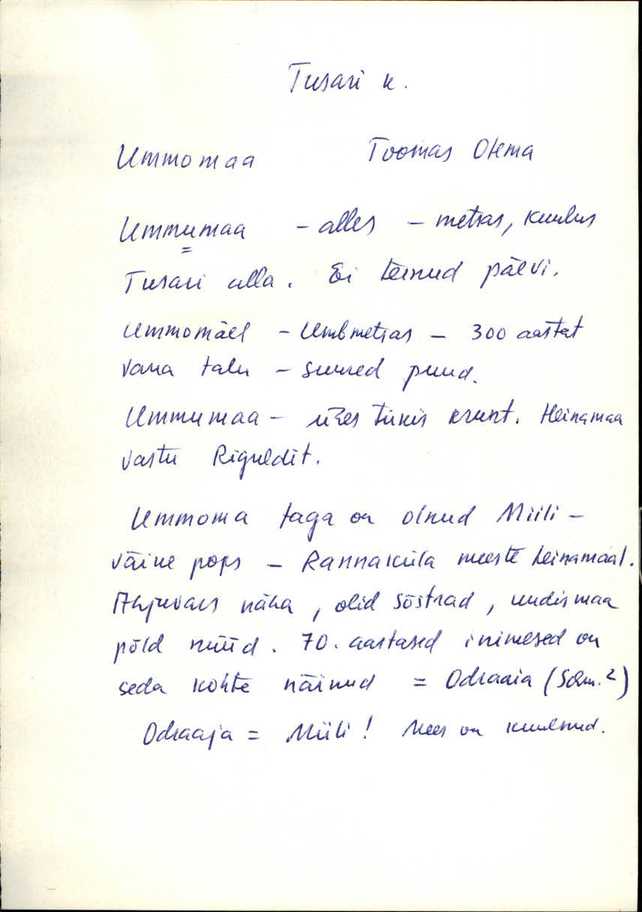 Tusari k.
Ummomaa Toomas Olema
Ummumaa – alles – metras, kuulus
Tusari alla. Ei teinud päevi.
Ummomäel – Umbmetsas – 300 aastat
vana talu – suured puud.
Ummumaa – ühes tükis krunt. Heinamaa
vastu Riguldit.
Ummoma taga on olnud Miili –
väike pops – Rannaküla meeste heinamaal.
Ahjuvare näha, olid sõstrad, uudismaa
põld nüüd. 70. aastased inimesed on
seda kohte näinud = Odraaia
Odraaja = Miili! Mees on kuulnud.